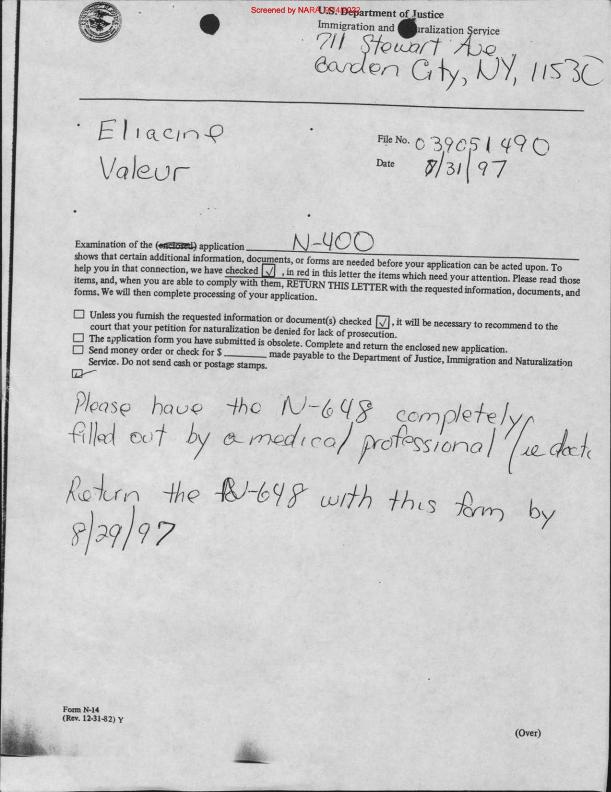 Screened by NARA
U.S. Department of Justice
Immigration and Naturalization Service
711 Stewart Ave
Garden City, NY, 11530
Eliacine
Valeur
File No. 039051490
Date 7/31/97
Examination of the (enclosed) application N-400
shows that certain additional information, documents, or forms are needed before your application can be acted upon. To
help you in that connection, we have checked ☑, in red in this letter the items which need your attention. Please read those
items, and, when you are able to comply with them, RETURN THIS LETTER with the requested information, documents, and
forms. We will then complete processing of your application.
☐ Unless you furnish the requested information or document(s) checked ☑, it will be necessary to recommend to the
court that your petition for naturalization be denied for lack of prosecution.
☐ The application form you have submitted is obsolete. Complete and return the enclosed new application.
☐ Send money order or check for $ ______ made payable to the Department of Justice, Immigration and Naturalization
Service. Do not send cash or postage stamps.
☑
Please have the N-648 completely
filled out by a medical professional (ie doctc
Return the N-648 with this form by
8/29/97
Form N-14
(Rev. 12-31-82) Y
(Over)